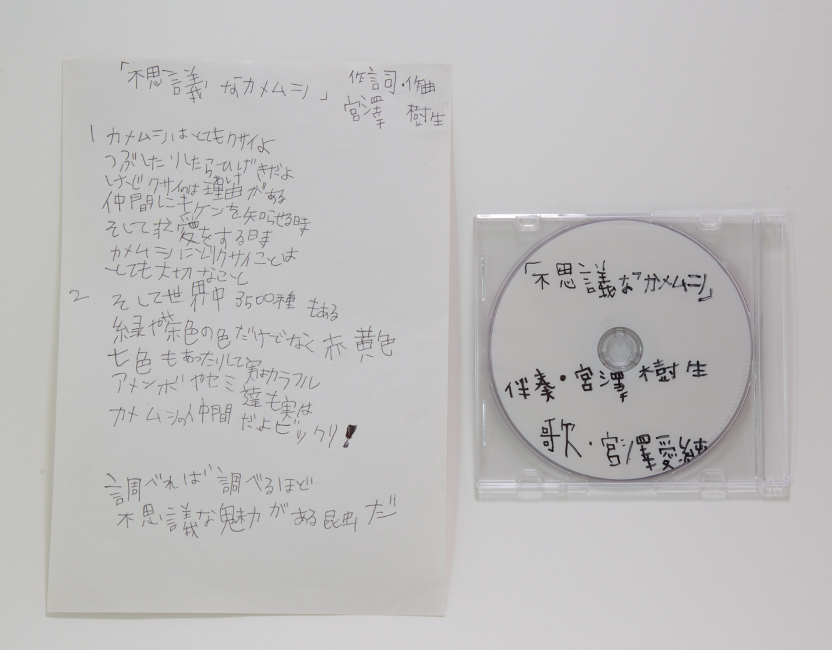 「不思議なカメムシ」 作詞・作曲
宮澤 樹生
1 カメムシはとてもクサイよ
つぶしたりしたらひげきだよ
けどクサイのは理由がある
わけ
仲間にキケンを知らせる時
そして求愛をする時
カメムシにとりクサイことは
とても大切なこと
2 そして世界中3500種もある
緑や茶色の色だけでなく赤黄色
七色もあったりして実はカラフル
アメンボやセミ達も実は
カメムシの仲間だよビックリ!
調べれば調べるほど
不思議な魅力がある昆虫だ
「不思議なカメムシ」
伴奏・宮澤樹生
歌・宮澤愛純